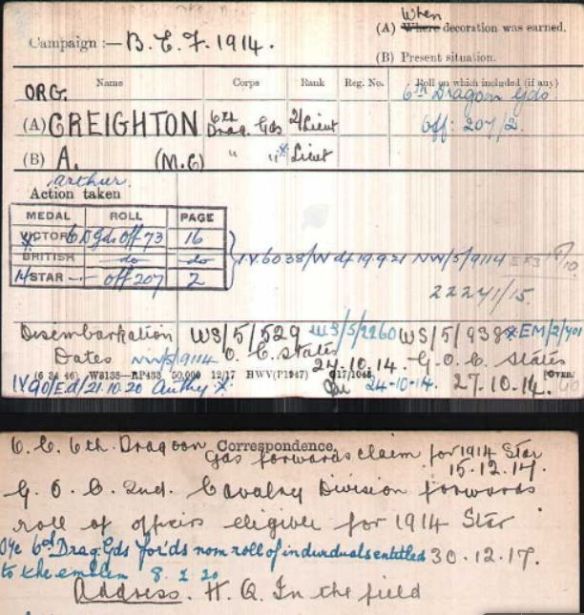 Campaign :— B.E.F. 1914.
(A) When Where decoration was earned.
(B) Present situation.
Name Corps Rank Reg. No. Roll on which included (if any)
ORG.
(A) CREIGHTON 6th Drag. Gds 2/Lieut 6th Dragoon Gds Off: 207/2.
(B) A. (M.C) " " "* Lieut
Arthur.
Action taken
MEDAL ROLL PAGE
VICTORY 6 D Gds Off 73 16
BRITISH do do
14 STAR Off 207 2
NW/5/9114
22241/15
Disembarkation WS/5/529 WS/5/2260 WS/5/938 * EM/2/401
Dates NW/5/9114 O. C. states 24-10-14. G.O.C. states
(6 34 46) W8135—RP483 50,000 12/17 HWV(P1947) [OVER.
IV.90/Ed/21.10.20 Authy *. 24-10-14. 27.10.14.
Correspondence.
O.C. 6th. Dragoon Gds forwards claim for 1914 Star
15.12.17.
G.O.C. 2nd. Cavalry Division forwards
roll of officers eligible for 1914 Star
O/c 6th Drag. Gds for'ds nom roll of individuals entitled 30.12.17.
to the emblem 8. 2 20
Address. H.Q. In the field